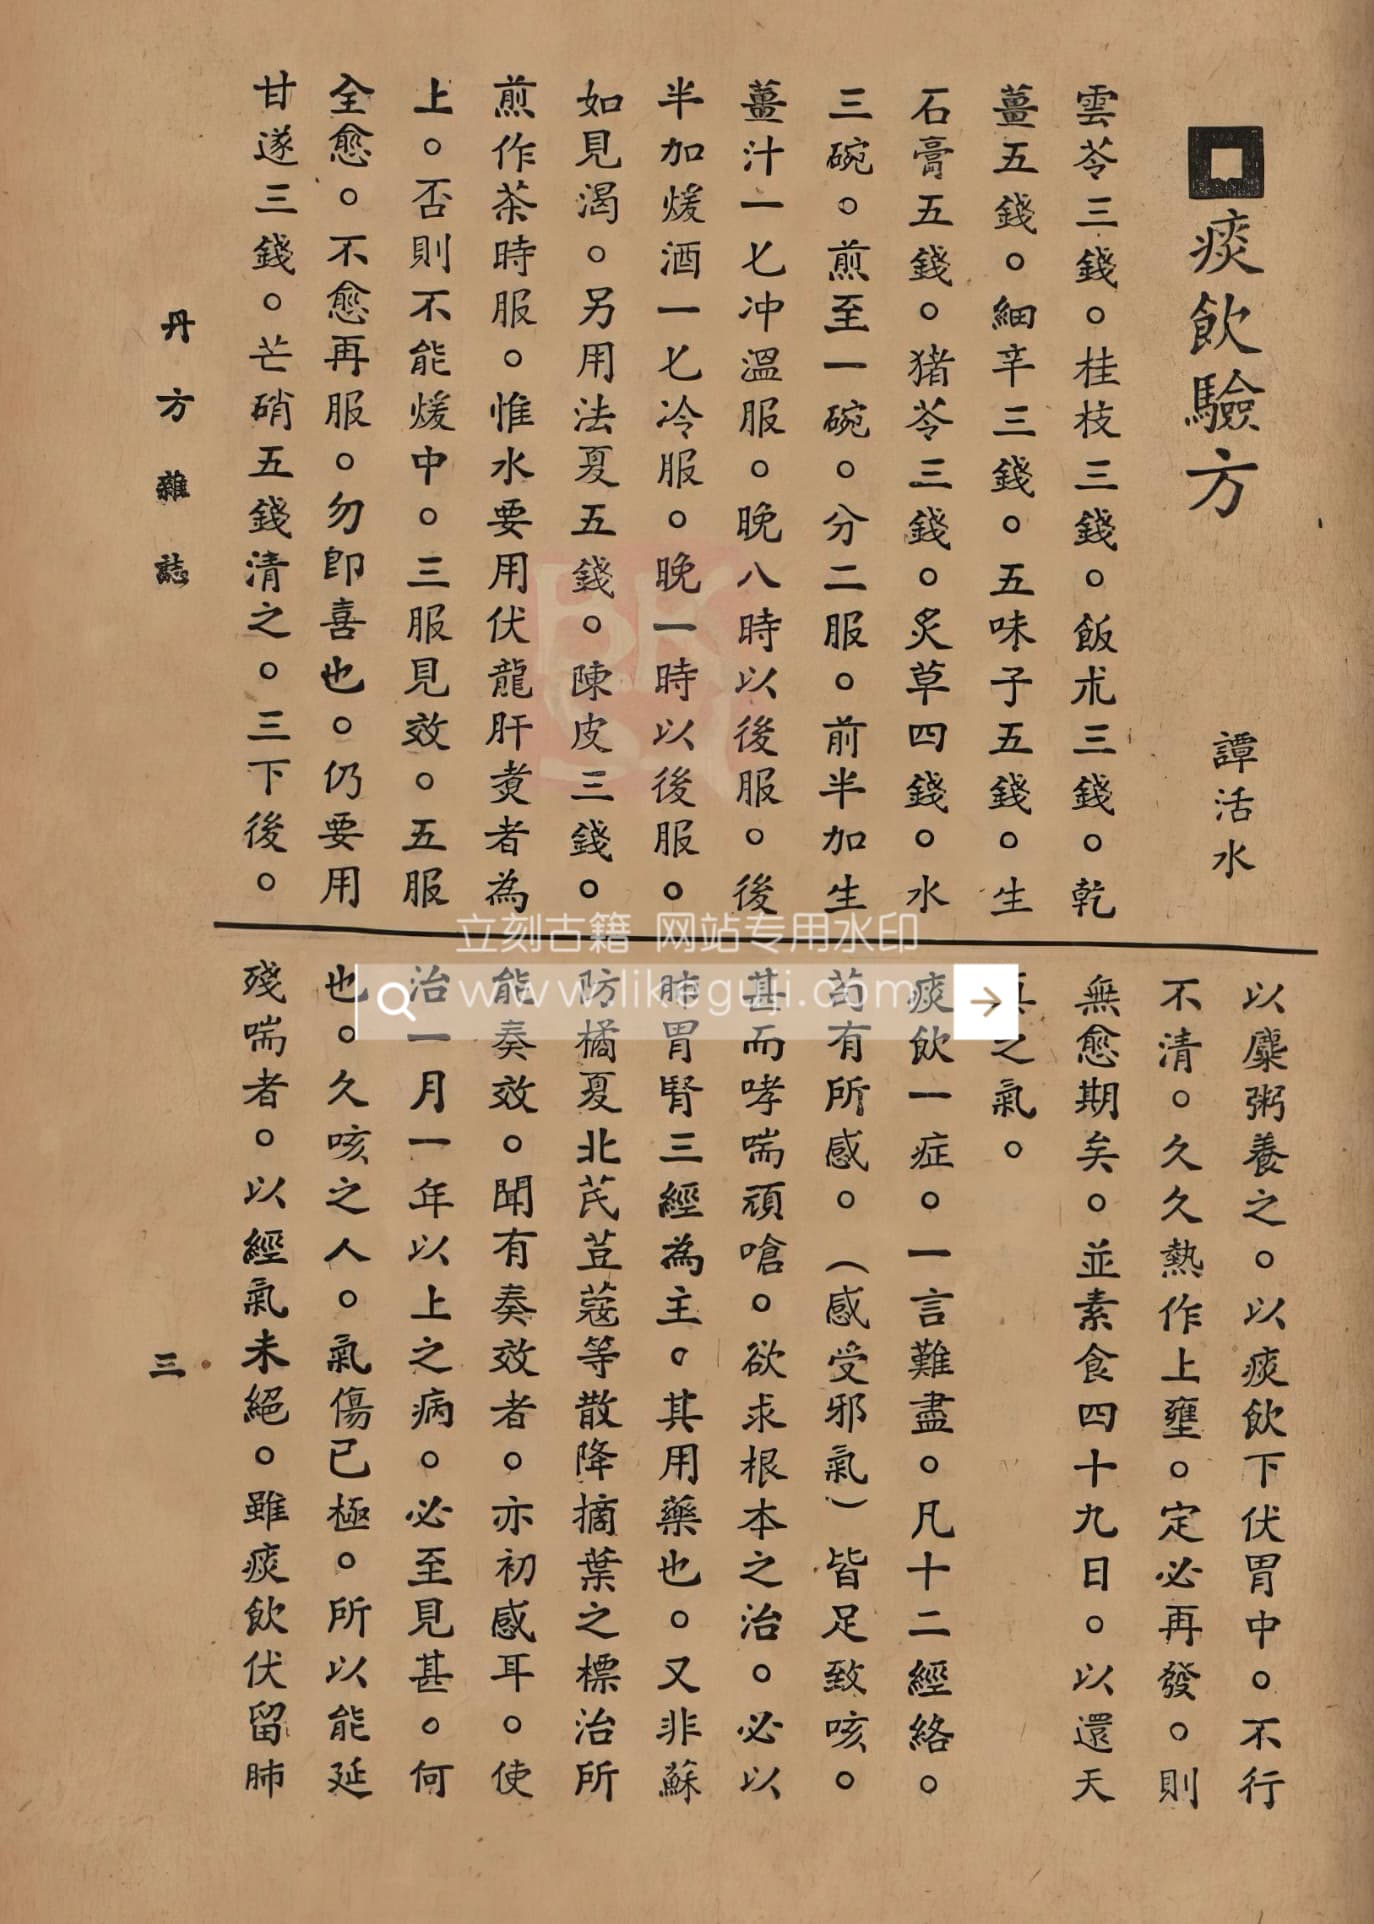 痰飲驗方
譚活水
雲苓三錢。桂枝三錢。飯朮三錢。乾
薑五錢。細辛三錢。五味子五錢。生
石膏五錢。猪苓三錢。炙草四錢。水
三碗。煎至一碗。分二服。前半加生
薑汁一匕冲溫服。晚八時以後服。後
半加煖酒一匕冷服。晚一時以後服。
如見渴。另用法夏五錢。陳皮三錢。
煎作茶時服。惟水要用伏龍肝煑者為
上。否則不能煖中。三服見效。五服
全愈。不愈再服。勿卽喜也。仍要用
甘遂三錢。芒硝五錢清之。三下後。
以麋粥養之。以痰飲下伏胃中。不行
不清。久久熱作上壅。定必再發。則
無愈期矣。並素食四十九日。以還天
真之氣。
痰飲一症。一言難盡。凡十二經絡。
苟有所感。（感受邪氣）皆足致咳。
甚而哮喘頑嗆。欲求根本之治。必以
肺胃腎三經為主。其用藥也。又非蘇
防橘夏北芪荳蔻等散降摘葉之標治所
能奏效。聞有奏效者。亦初感耳。使
治一月一年以上之病。必至見甚。何
也。久咳之人。氣傷已極。所以能延
殘喘者。以經氣未絕。雖痰飲伏留肺
丹方雜誌
三
立刻古籍 网站专用水印
www.likeguji.com